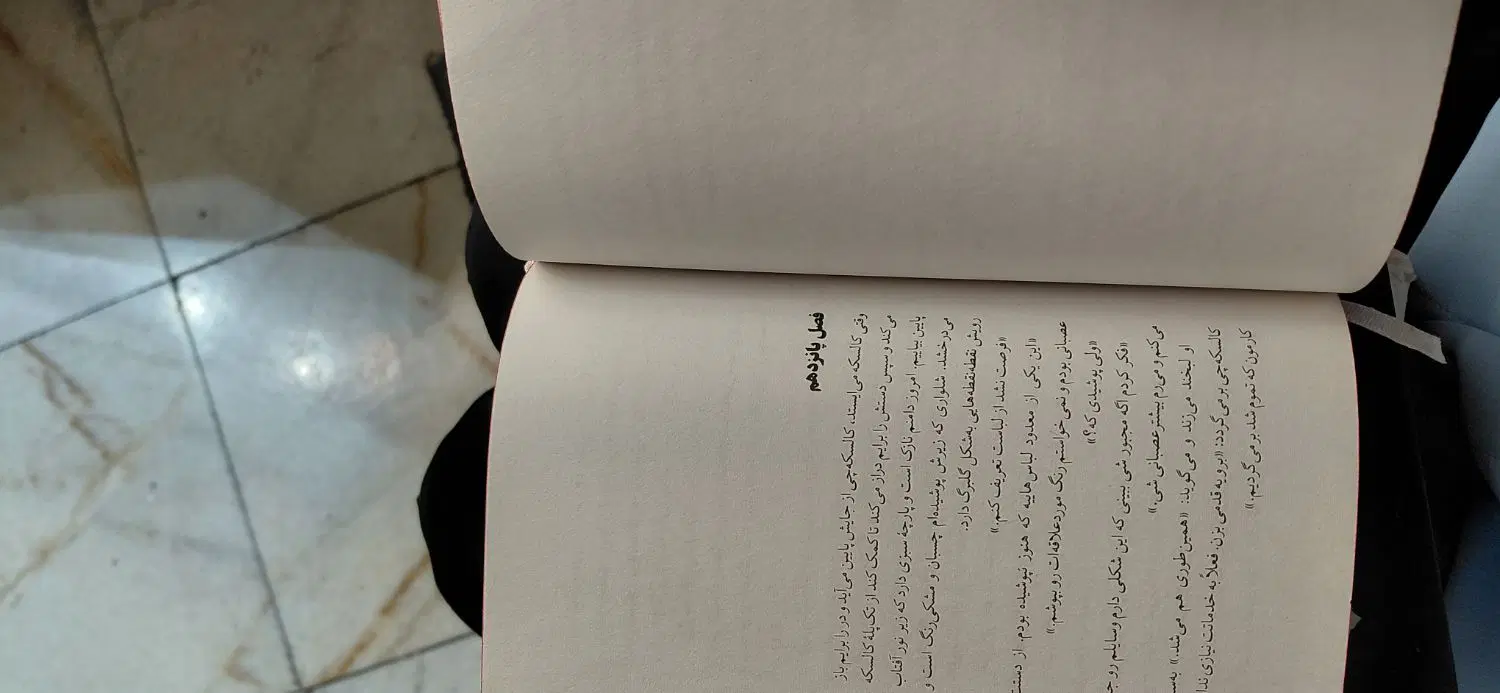 فصل پانزدهم
وقتی کالسکه می‌ایستد، کالسکه‌چی از جایش پایین می‌آید و در را برایم باز
می‌کند و سپس دستش را برایم دراز می‌کند تا کمک کند از تک‌پلهٔ کالسکه
پایین بیاییم. امروز دامنم نازک است و پارچه سبزی دارد که زیر نور آفتاب
می‌درخشد. شلواری که زیرش پوشیده‌ام چسبان و مشکی‌رنگ است و
رویش نقطه‌نقطه‌هایی به‌شکل گلبرگ دارد.
«فرصت نشد از لباست تعریف کنم.»
«این یکی از معدود لباس‌هاییه که هنوز نپوشیده بودم. از دستت
عصبانی بودم و نمی‌خواستم رنگ موردعلاقه‌ات رو بپوشم.»
«ولی پوشیدی که؟»
«فکر کردم اگه مجبور شی ببینی که این شکلی دارم وسایلم رو
می‌کنم و می‌رم بیشتر عصبانی شی.»
او لبخند می‌زند و می‌گوید: «همین‌طوری هم می‌شد.»
کالسکه‌چی برمی‌گردد: «برو یه قدمی بزن. فعلاً به خدماتت نیازی
کارمون که تموم شد برمی‌گردیم.»